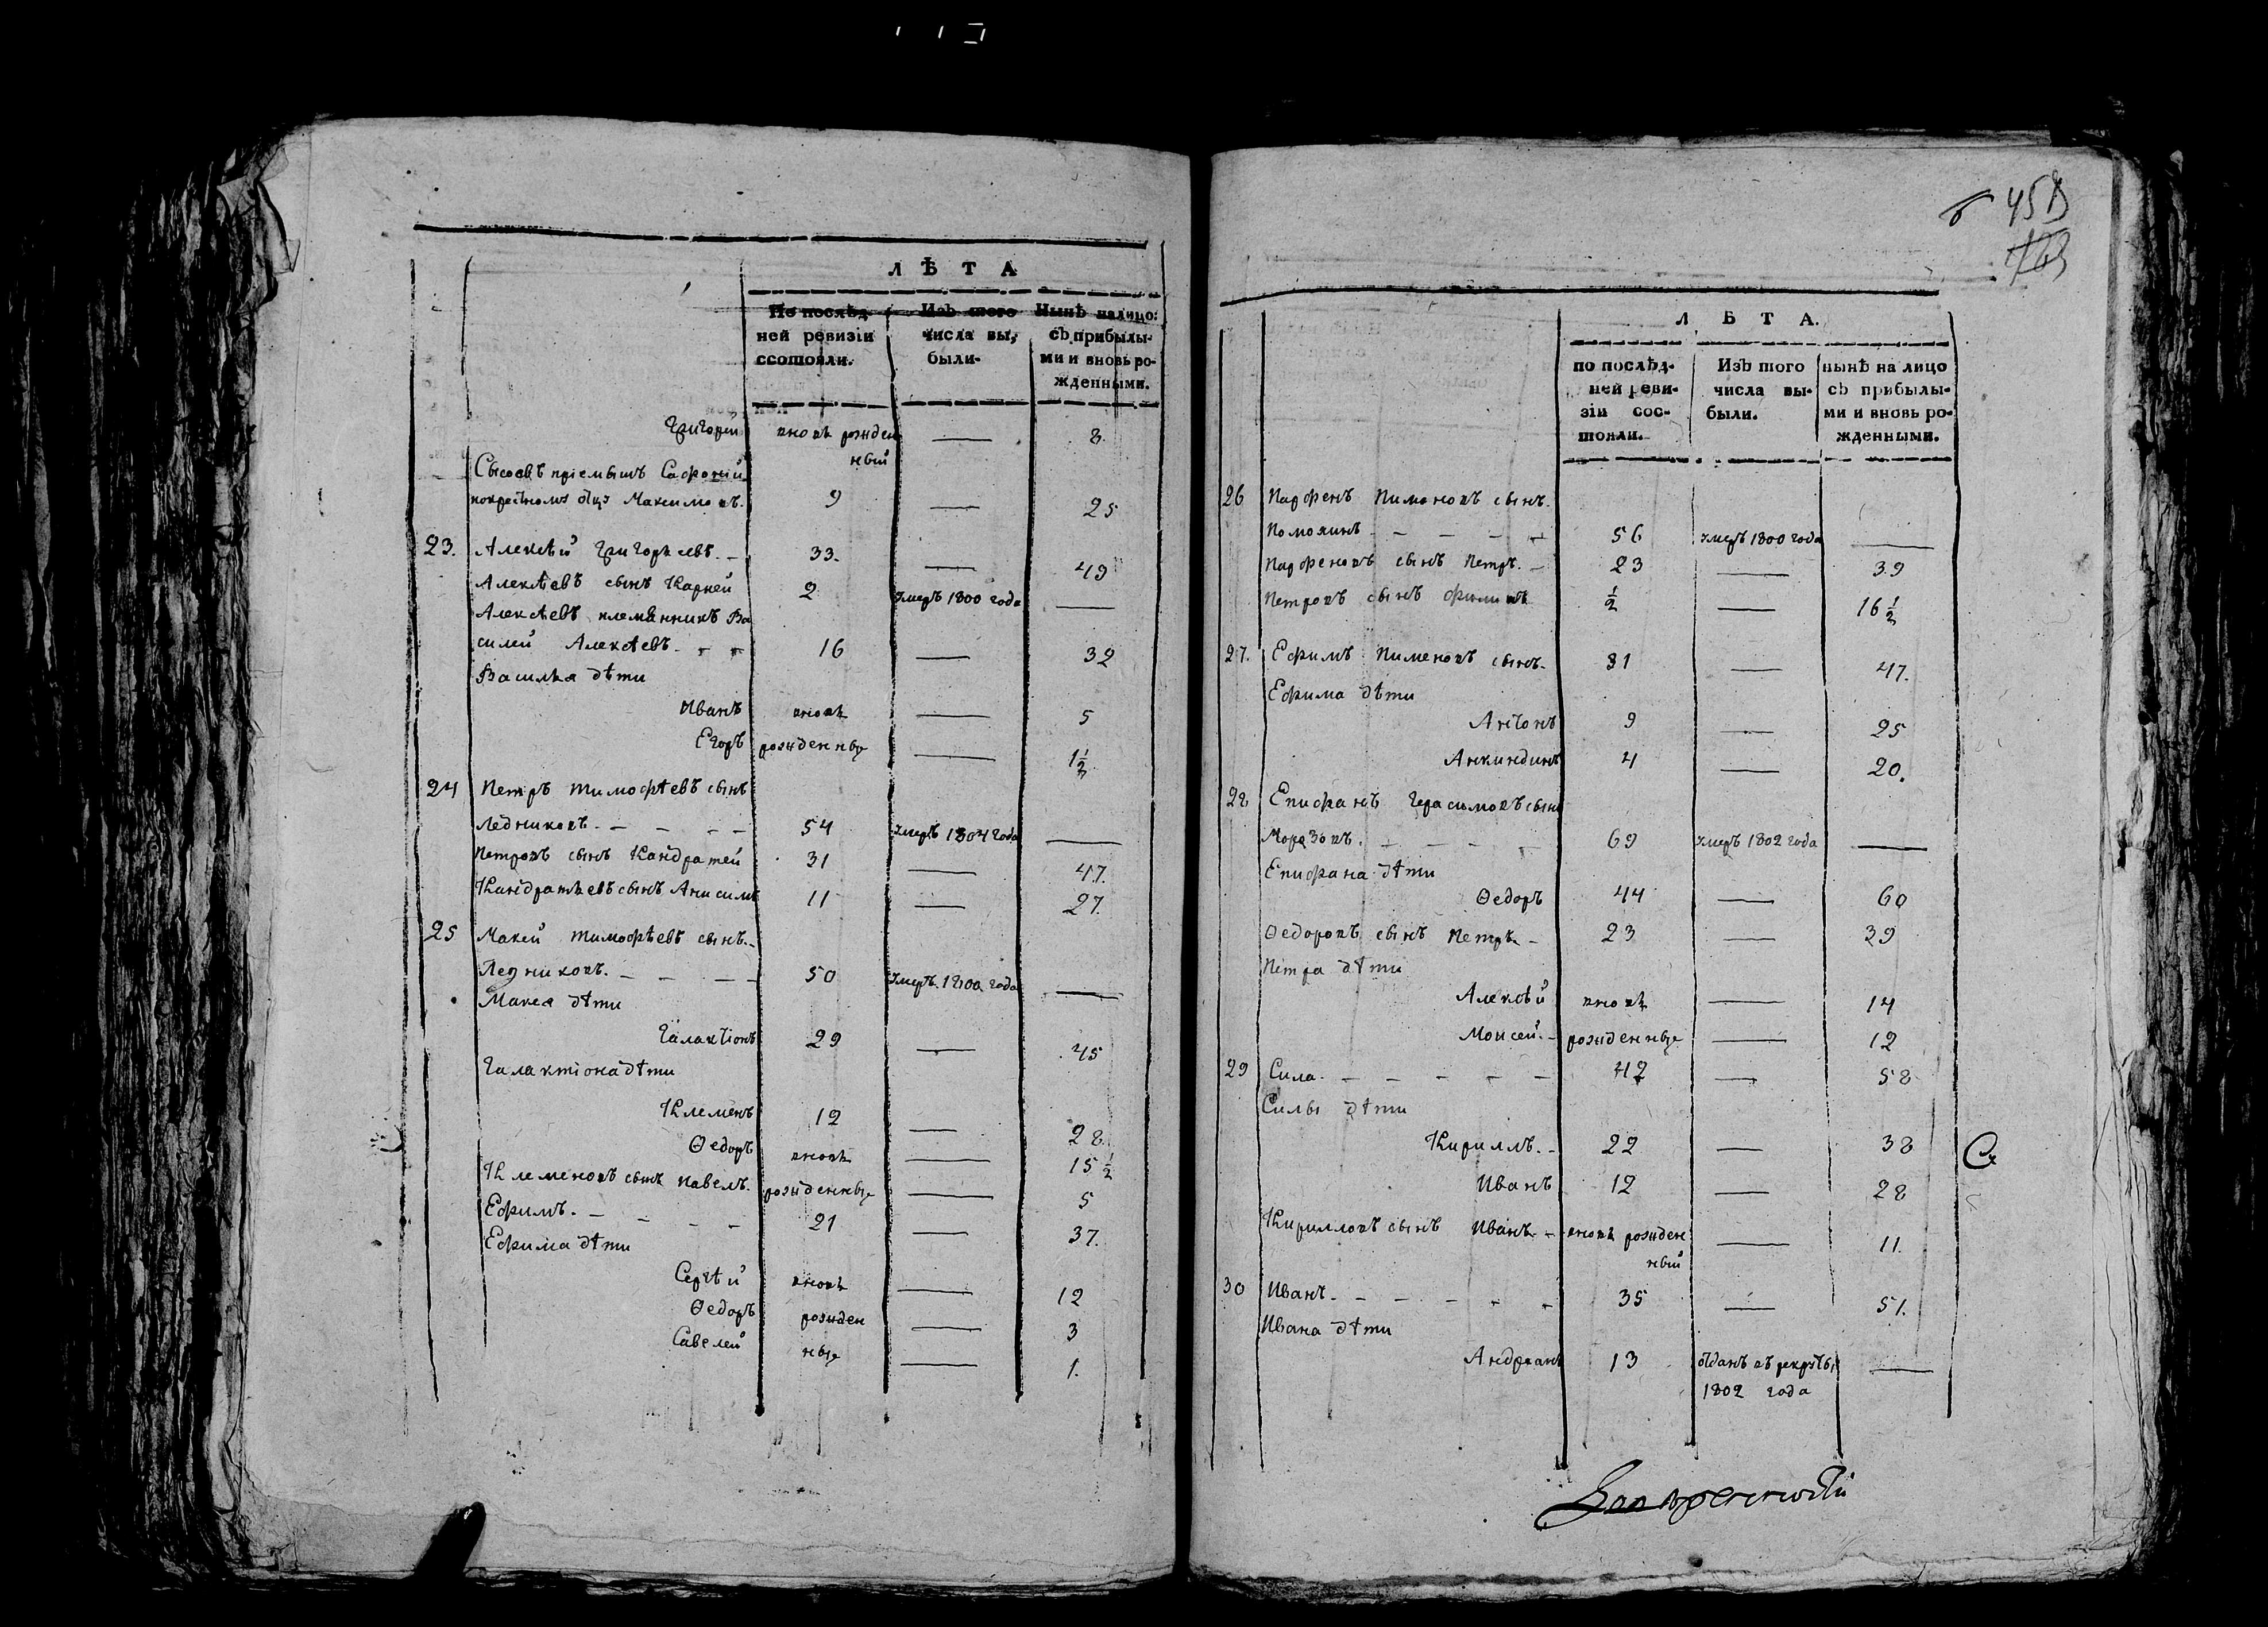 ЛѢТА
По послѣд- Изъ того Нынѣ налицо
ней ревизіи числа вы, съ прибылы-
ссошояли. были- ми и вновь ро-
жденными.
Григорей вновь рожден — 8.
ный
Сысоевъ пріемышъ Сафоній
покрестному отцу Максимовъ. 9 — 25
23. Алексѣй Григорьевъ. — 33. — 49
Алексѣевъ сынъ Карней 2 умеръ 1800 года —
Алексѣевъ племянникъ Ва
силей Алексѣевъ. — — 16 — 32
Василья дѣти
Иванъ вновь — 5
Егоръ рожденные — 1½
24 Петръ Тимофѣевъ сынъ
Ледниковъ. — — — — 54 умеръ 1804 года —
Петровъ сынъ Кандратей 31 — 47.
Кандратьевъ сынъ Анисимъ 11 — 27.
25 Макей Тимофѣевъ сынъ. —
Ледниковъ. — — — — 50 умеръ. 1800 года —
Макея дѣти
Галактіонъ 29 — 45
Галактіона дѣти
Клеменъ 12 — 28.
Ѳедоръ вновь — 15½
Клеменовъ сынъ Павелъ. рожденные — 5
Ефимъ. — — — — 21 — 37.
Ефима дѣти
Сергѣй вновь — 12
Ѳедоръ рожден — 3
Савелей ные — 1.
45
ЛѢТА.
по послѣд- Изъ того нынѣ на лицо
ней реви- числа вы- съ прибылы-
зіи сос- были. ми и вновь ро-
тояли. жденными.
26 Парфенъ Пимоновъ сынъ.
Помоянъ — — — — 56 умеръ 1800 года —
Парфеновъ сынъ Петръ. — 23 — 39
Петровъ сынъ Филипъ ½ — 16½
27. Ефимъ Пименовъ сынъ. 31 — 47.
Ефима дѣти
Антонъ 9 — 25
Анкиндинъ 4 — 20.
28 Епифанъ Герасимовъ сынъ
Морозовъ. — — — — 69 умеръ 1802 года —
Епифана дѣти
Ѳедоръ 44 — 60
Ѳедоровъ сынъ Петръ. — 23 — 39
Петра дѣти
Алексѣй вновь — 14
Моисей. — рожденные — 12
29 Сила. — — — — — 42 — 58
Силы дѣти
Кириллъ. — 22 — 38
Иванъ 12 — 28
Кирилловъ сынъ Иванъ — вновь рожден — 11.
ный
30 Иванъ. — — — — — 35 — 51.
Ивана дѣти
Андреанъ 13 отданъ въ рекруты —
1802 года